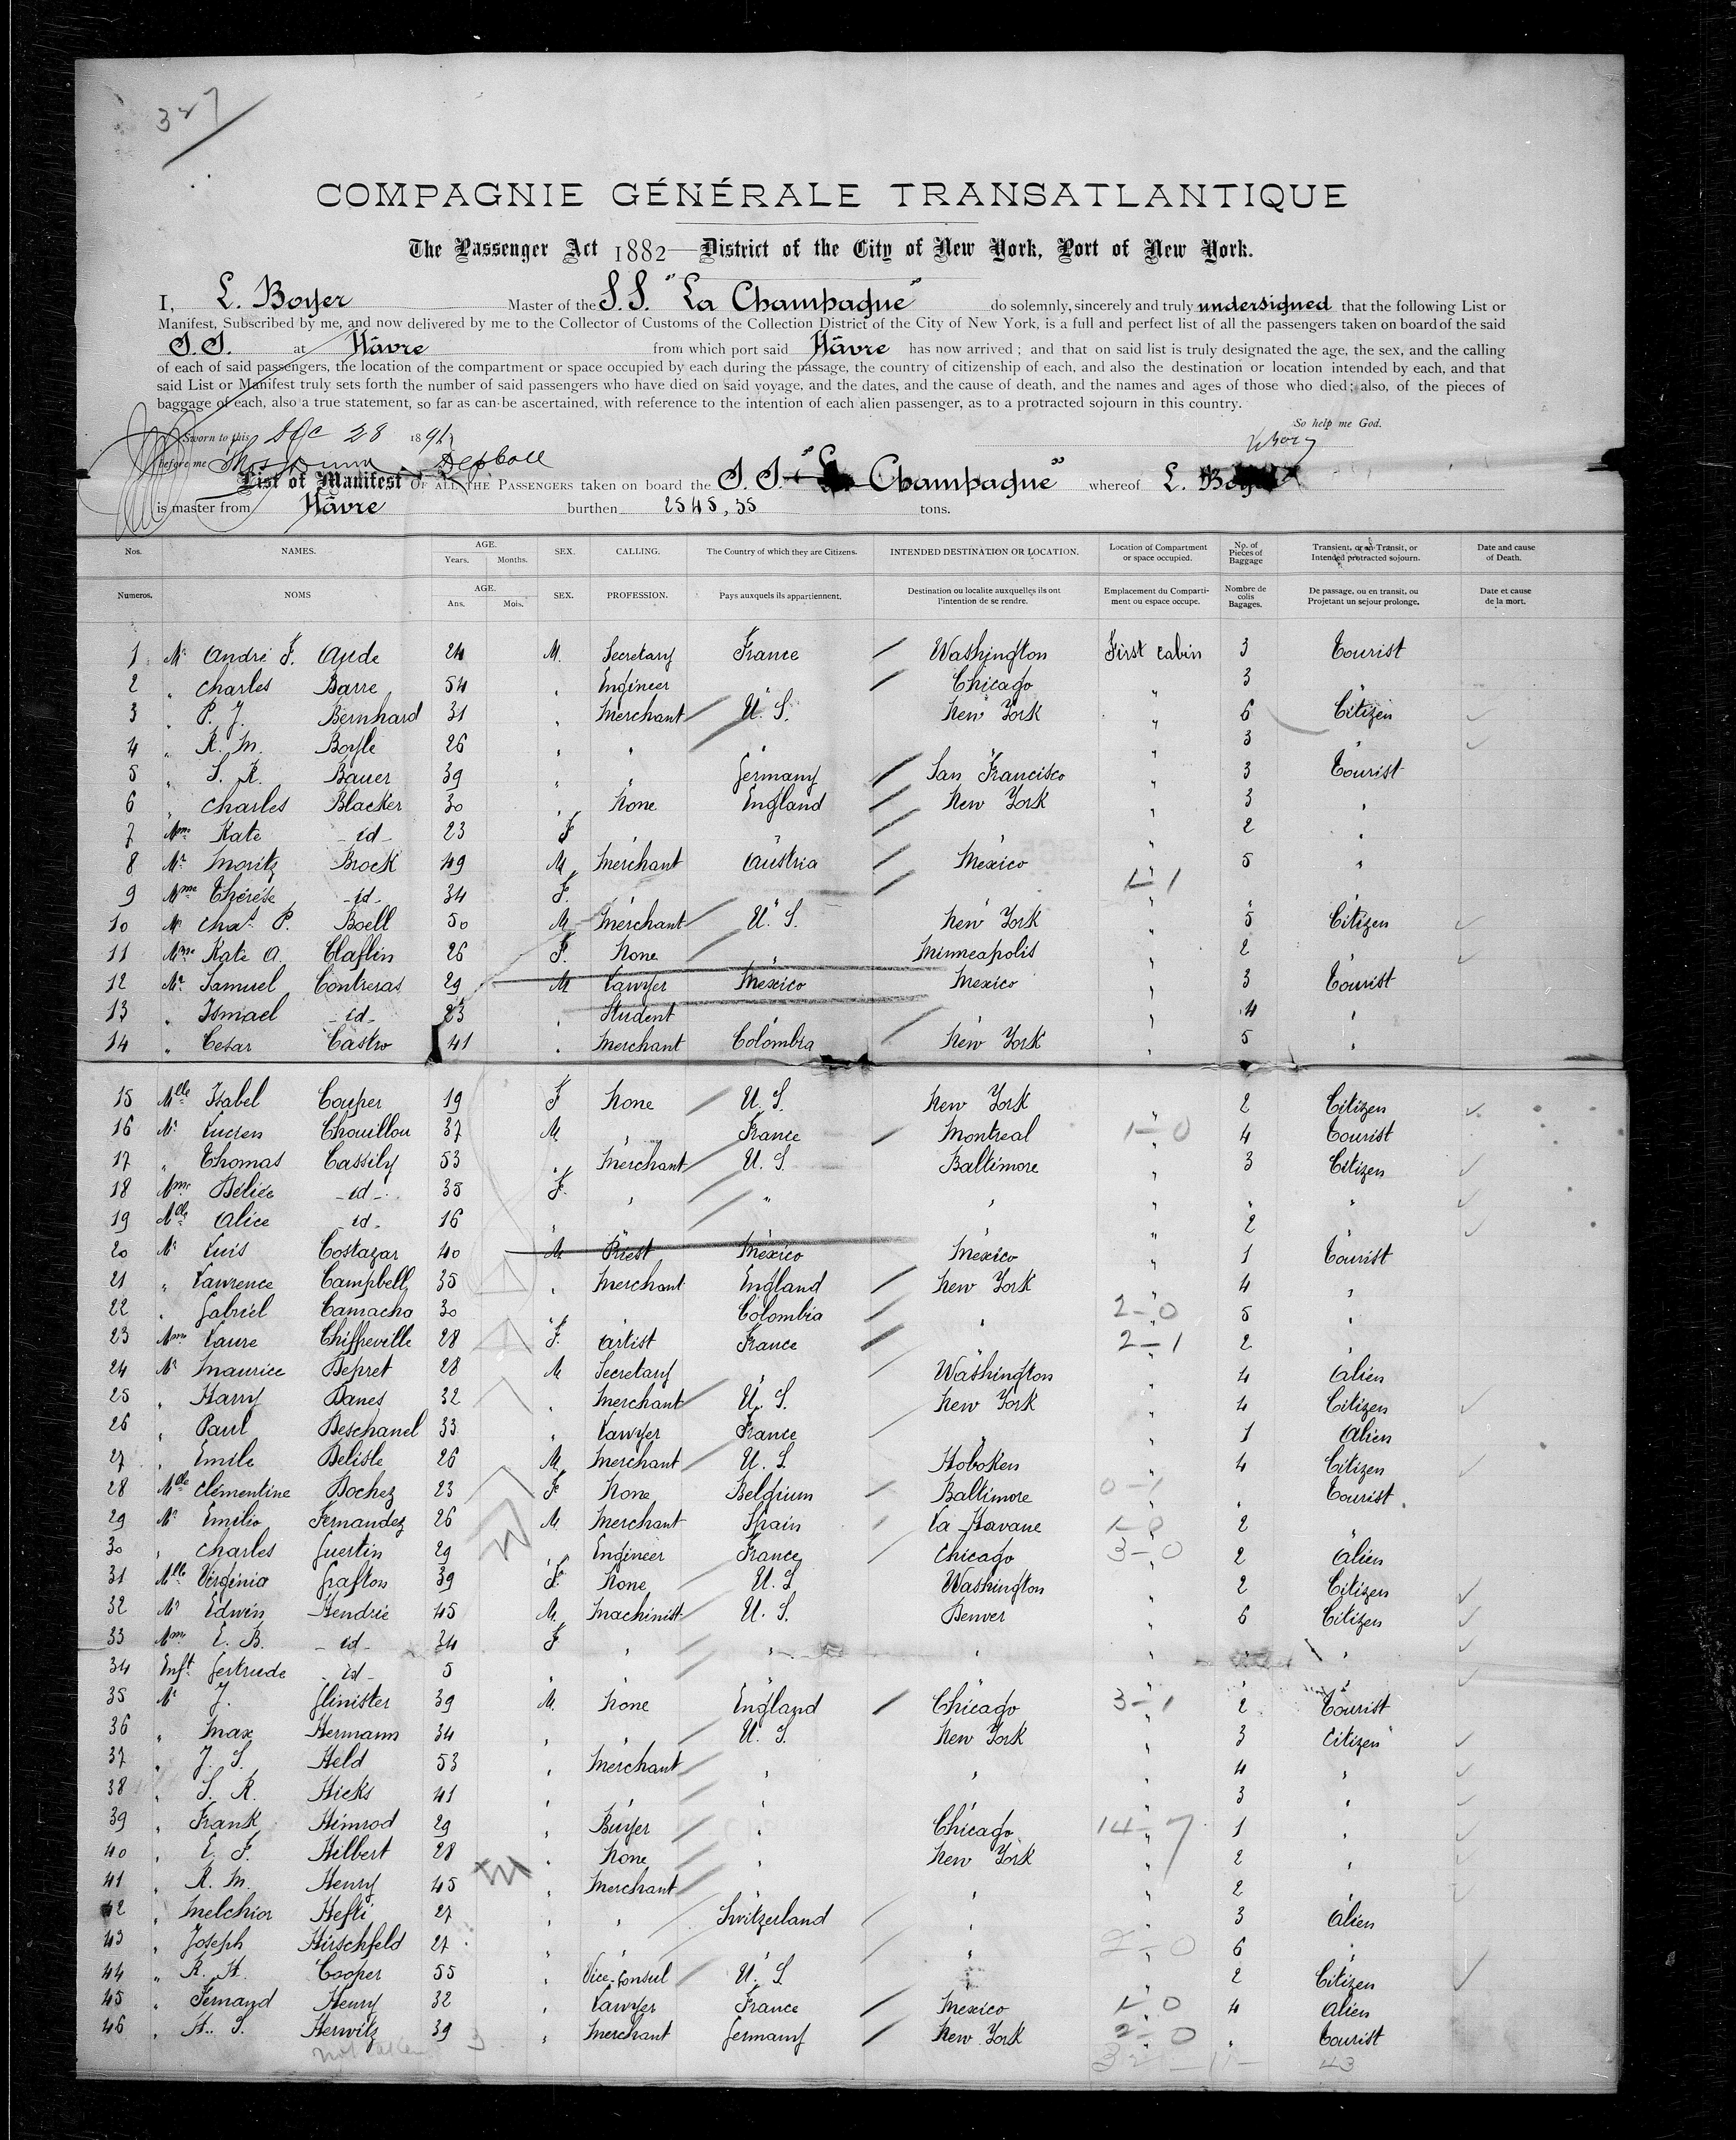 327
COMPAGNIE GÉNÉRALE TRANSATLANTIQUE
The Passenger Act 1882—District of the City of New York, Port of New York.
I, L. Boyer Master of the S.S. "La Champagne" do solemnly, sincerely and truly undersigned that the following List or
Manifest, Subscribed by me, and now delivered by me to the Collector of Customs of the Collection District of the City of New York, is a full and perfect list of all the passengers taken on board of the said
S.S. at Hâvre from which port said Hâvre has now arrived; and that on said list is truly designated the age, the sex, and the calling
of each of said passengers, the location of the compartment or space occupied by each during the passage, the country of citizenship of each, and also the destination or location intended by each, and that
said List or Manifest truly sets forth the number of said passengers who have died on said voyage, and the dates, and the cause of death, and the names and ages of those who died; also, of the pieces of
baggage of each, also a true statement, so far as can be ascertained, with reference to the intention of each alien passenger, as to a protracted sojourn in this country.
So help me God.
Sworn to this Dec 28 189
before me
List of Manifest OF ALL THE PASSENGERS taken on board the S.S. "La Champagne" whereof L. Boyer
is master from Hâvre burthen 2545,55 tons.
Nos. NAMES. AGE. Years. Months. SEX. CALLING. The Country of which they are Citizens. INTENDED DESTINATION OR LOCATION. Location of Compartment or space occupied. No. of Pieces of Baggage Transient, or in Transit, or Intended protracted sojourn. Date and cause of Death.
Numeros. NOMS AGE. Ans. Mois. SEX. PROFESSION. Pays auxquels ils appartiennent. Destination ou localite auxquelles ils ont l'intention de se rendre. Emplacement du Compartiment ou espace occupe. Nombre de colis Bagages. De passage, ou en transit, ou Projetant un sejour prolonge. Date et cause de la mort.
1 Mr André F. Aude 24 M. Secretary France Washington First cabin 3 Tourist
2 " Charles Barre 54 " Engineer " Chicago " 3 "
3 " P. J. Bernhard 31 " Merchant U. S. New York " 6 Citizen
4 " R. M. Boyle 26 " " " " " 3 "
5 " S. R. Bauer 39 " " Germany San Francisco " 3 Tourist
6 " Charles Blacker 30 " None England New York " 3 "
7 Mme Kate id 23 F " " " " 2 "
8 Mr Moritz Brock 49 M Merchant Austria Mexico " 5 "
9 Mme Thérèse id 34 F. " " " 1-1 " "
10 Mr Chas P. Boell 50 M Merchant U. S. New York " 5 Citizen
11 Mme Kate A. Claflin 26 F. None " Minneapolis " 2 "
12 Mr Samuel Contreras 29 M Lawyer Mexico Mexico " 3 Tourist
13 " Ismael id 23 " Student " " " 4 "
14 " Cesar Castro 41 " Merchant Colombia New York " 5 "
15 Mlle Isabel Couper 19 F None U. S. New York " 2 Citizen
16 Mr Lucien Chouillou 37 M " France Montreal 1-0 4 Tourist
17 " Thomas Cassily 53 " Merchant U. S. Baltimore " 3 Citizen
18 Mme Délice id 35 F. " " " " " "
19 Mlle Alice id 16 " " " " " 2 "
20 Mr Luis Costazar 40 M Priest Mexico Mexico " 1 Tourist
21 " Lawrence Campbell 35 " Merchant England New York " 4 "
22 " Gabriel Camacha 30 " " Colombia " 2-0 5 "
23 Mme Laure Chiffreville 28 F. Artist France " 2-1 2 "
24 Mr Maurice Depret 28 M Secretary " Washington " 4 Alien
25 " Harry Danes 32 " Merchant U. S. New York " 4 Citizen
26 " Paul Deschanel 33 " Lawyer France " " 1 Alien
27 " Emile Delisle 26 M Merchant U. S. Hoboken " 4 Citizen
28 Mlle Clémentine Dochez 23 F None Belgium Baltimore 0-1 " Tourist
29 Mr Emilio Fernandez 26 M Merchant Spain La Havane 1-0 2 "
30 " Charles Guertin 29 " Engineer France Chicago 3-0 2 Alien
31 Mlle Virginia Grafton 39 F. None U. S. Washington " 2 Citizen
32 Mr Edwin Hendrie 45 M. Machinist U. S. Denver " 6 Citizen
33 Mme E. B. id 34 F " " " " " "
34 Enft Gertrude id 5 " " " " " " "
35 Mr J. Glinister 39 M. None England Chicago 3-1 2 Tourist
36 " Max Hermann 34 " " U. S. New York " 3 Citizen
37 " J. S. Held 53 " Merchant " " " 4 "
38 " S. R. Hicks 41 " " " " " 3 "
39 " Frank Himrod 29 " Buyer " Chicago 14-7 1 "
40 " E. F. Hilbert 28 " None " New York " 2 "
41 " R. M. Henry 45 " Merchant " " " 2 "
42 " Melchior Hefti 27 " " Switzerland " " 3 Alien
43 " Joseph Hirschfeld 27 " " " " 2-0 6 "
44 " R. H. Cooper 55 " Vice-Consul U. S. " " 2 Citizen
45 " Fernand Henry 32 " Lawyer France Mexico 1-0 4 Alien
46 " H. S. Herwitz 39 " Merchant Germany New York 2-0 " Tourist
43